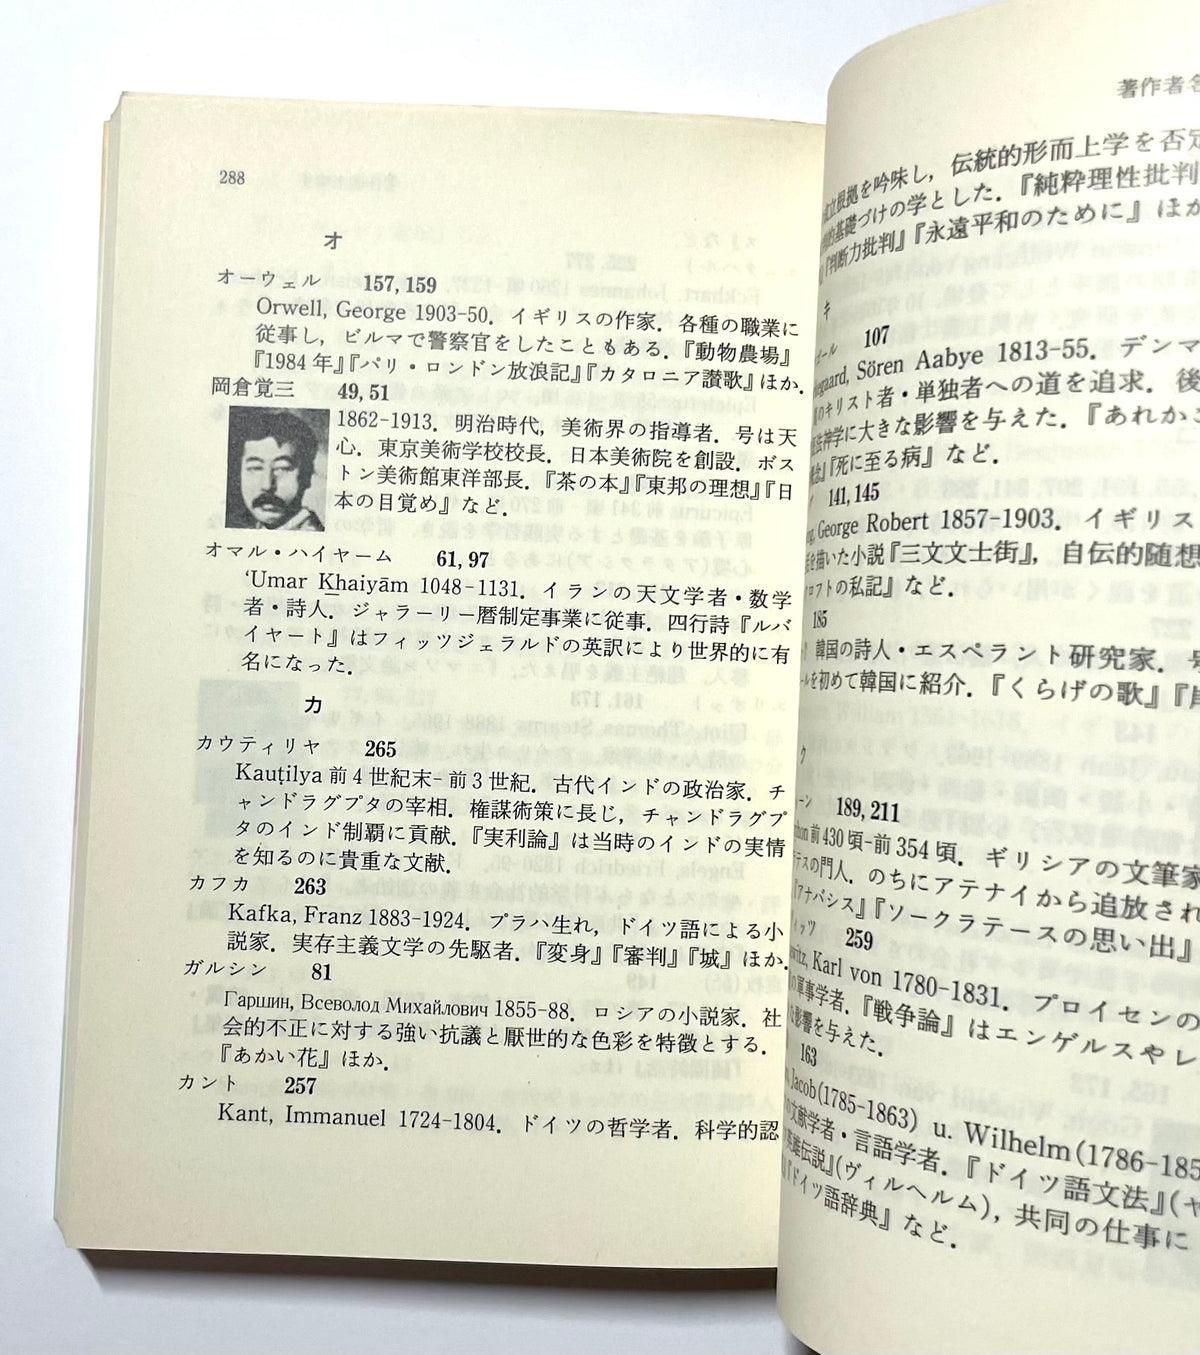 288
オ
オーウェル 157, 159
Orwell, George 1903-50. イギリスの作家. 各種の職業に
従事し, ビルマで警察官をしたこともある.『動物農場』
『1984年』『パリ・ロンドン放浪記』『カタロニア讃歌』ほか.
岡倉覚三 49, 51
1862-1913. 明治時代, 美術界の指導者. 号は天
心. 東京美術学校校長. 日本美術院を創設. ボス
トン美術館東洋部長. 『茶の本』『東邦の理想』『日
本の目覚め』など.
オマル・ハイヤーム 61, 97
‘Umar Khaiyām 1048-1131. イランの天文学者・数学
者・詩人. ジャラーリー暦制定事業に従事. 四行詩『ルバ
イヤート』はフィッツジェラルドの英訳により世界的に有
名になった.
カ
カウティリヤ 265
Kauṭilya 前4世紀末-前3世紀. 古代インドの政治家. チ
ャンドラグプタの宰相. 権謀術策に長じ, チャンドラグプ
タのインド制覇に貢献.『実利論』は当時のインドの実情
を知るのに貴重な文献.
カフカ 263
Kafka, Franz 1883-1924. プラハ生れ, ドイツ語による小
説家. 実存主義文学の先駆者.『変身』『審判』『城』ほか.
ガルシン 81
Гаршин, Всеволод Михайлович 1855-88. ロシアの小説家. 社
会的不正に対する強い抗議と厭世的な色彩を特徴とする.
『あかい花』ほか.
カント 257
Kant, Immanuel 1724-1804. ドイツの哲学者. 科学的認
著作者
根拠を吟味し, 伝統的形而上学を否定
的基礎づけの学とした.『純粋理性批判
『判断力批判』『永遠平和のために』ほか
キ
ゴール 107
gaard, Sören Aabye 1813-55. デンマ
のキリスト者・単独者への道を追求. 後
法神学に大きな影響を与えた. 『あれかこ
念』『死に至る病』など.
141, 145
g, George Robert 1857-1903. イギリス
を描いた小説『三文文士街』, 自伝的随想
クロフトの私記』など.
185
韓国の詩人・エスペラント研究家. 号
ールを初めて韓国に紹介. 『くらげの歌』『岸
ク
ーン 189, 211
hon 前430頃-前354頃. ギリシアの文筆家
テスの門人. のちにアテナイから追放され
『アナバシス』『ソークラテースの思い出』
ィッツ 259
witz, Karl von 1780-1831. プロイセンの
の軍事学者.『戦争論』はエンゲルスやレ
な影響を与えた.
163
Jacob(1785-1863) u. Wilhelm(1786-185
の文献学者・言語学者. 『ドイツ語文法』(ヤ
英雄伝説』(ヴィルヘルム), 共同の仕事に
『ドイツ語辞典』など.